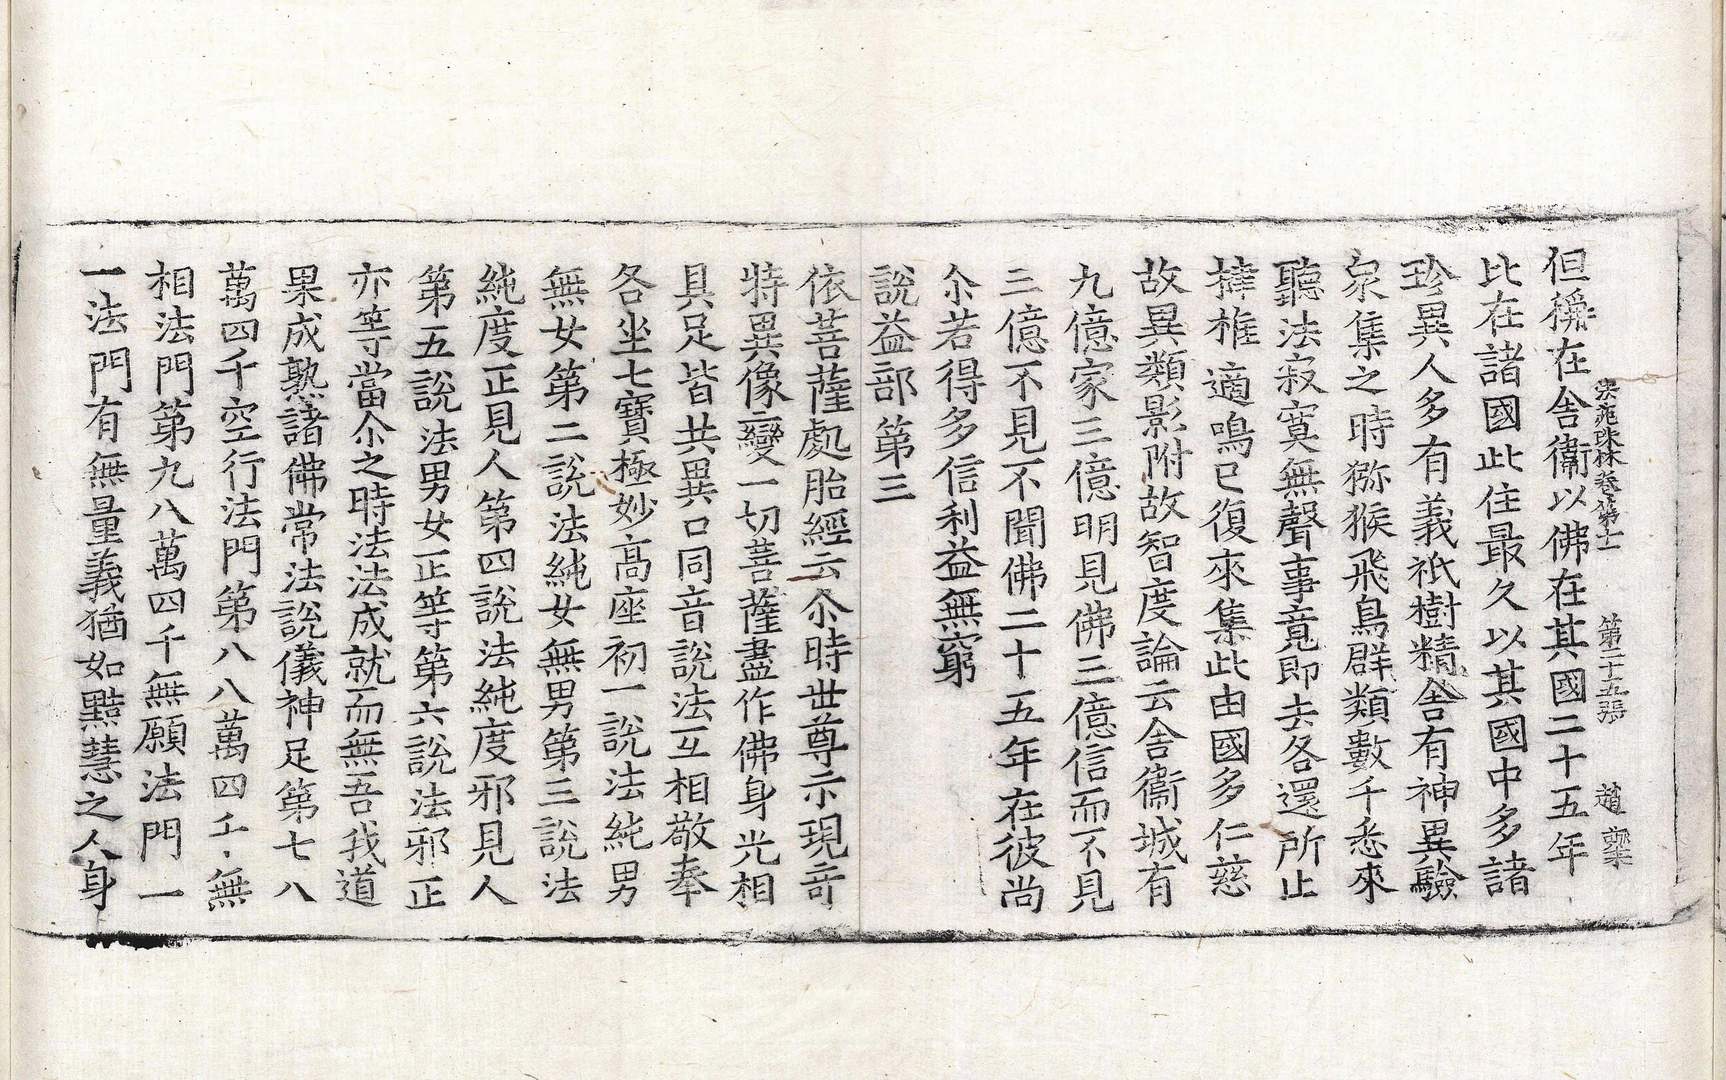 法苑珠林卷第十一　第二十五張　趙
但稱在舍衛以佛在其國二十五年
比在諸國此住最久以其國中多諸
珍異人多有義祇樹精舍有神異驗
衆集之時猕猴飛鳥群類數千悉來
聽法寂寞無聲事竟即去各還所止
揵椎適鳴已復來集此由國多仁慈
故異類影附故智度論云舍衛城有
九億家三億明見佛三億信而不見
三億不見不聞佛二十五年在彼尚
尒若得多信利益無窮
說益部第三
依菩薩處胎經云尒時世尊示現奇
特異像變一切菩薩盡作佛身光相
具足皆共異口同音說法互相敬奉
各坐七寶極妙高座初一說法純男
無女第二說法純女無男第三說法
純度正見人第四說法純度邪見人
第五說法男女正等第六說法邪正
亦等當尒之時法法成就而無吾我道
果成熟諸佛常法說儀神足第七八
萬四千空行法門第八八萬四千無
相法門第九八萬四千無願法門一
一法門有無量義猶如黠慧之人身